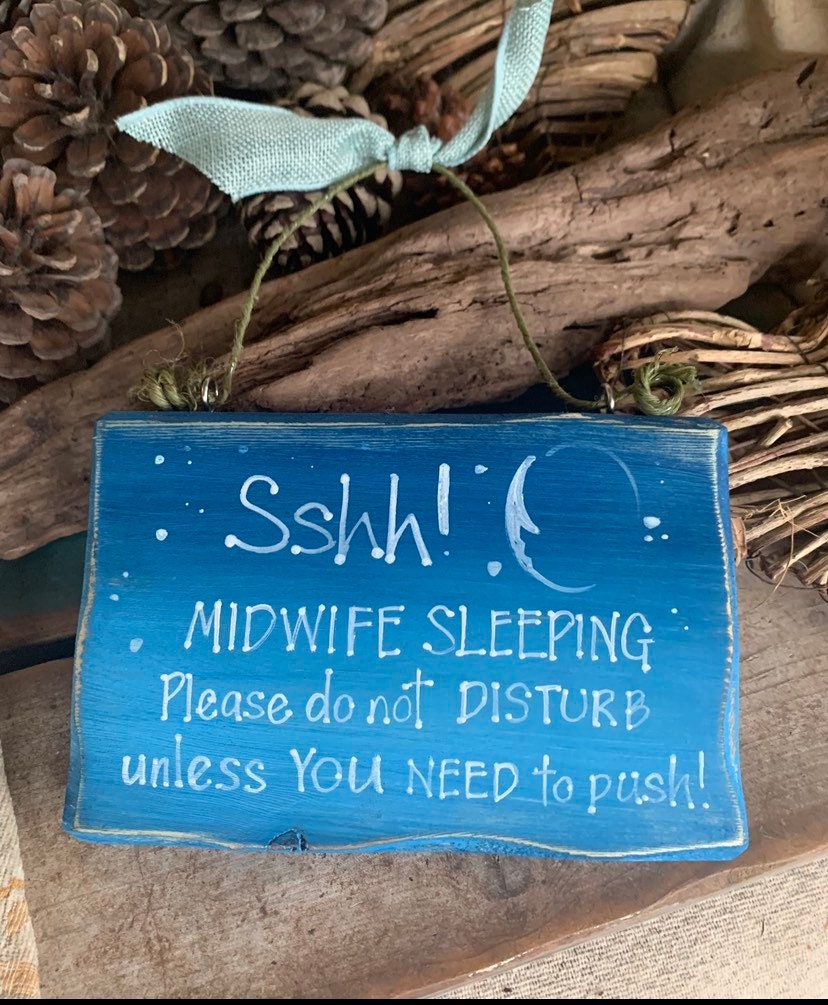 Sshh!
MIDWIFE SLEEPING
Please do not DISTURB
unless YOU NEED to push!